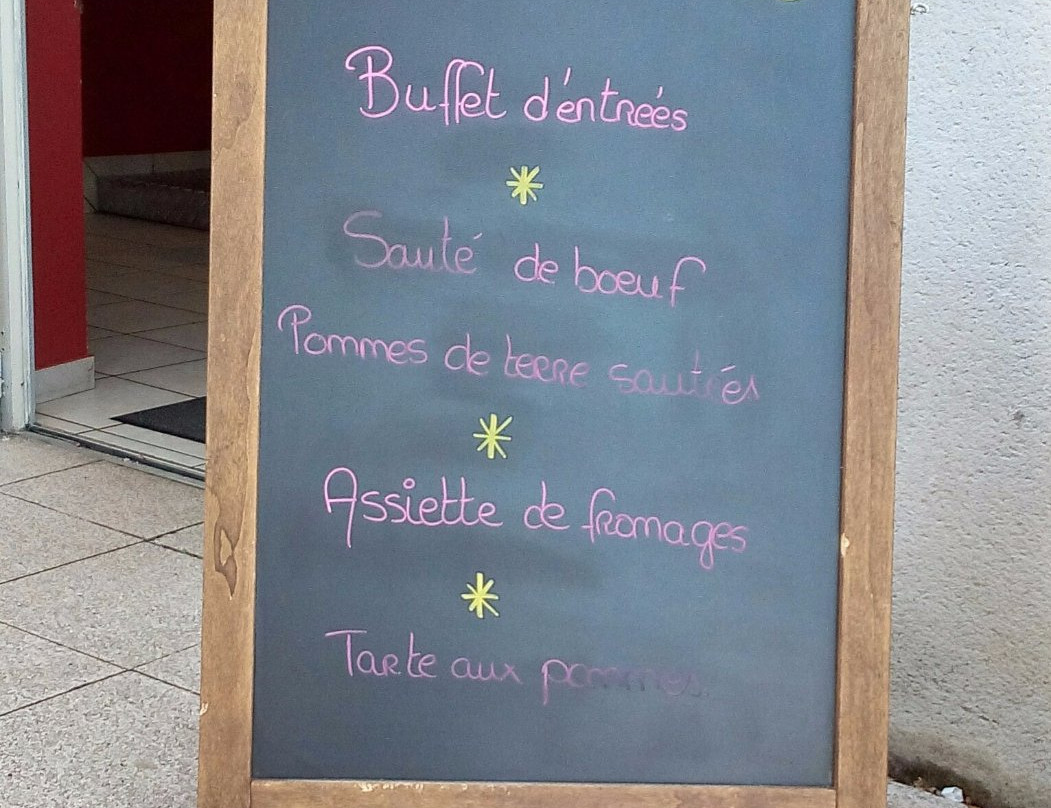 Buffet d'éntreés
Sauté de boeuf
Pommes de terre sautées
Assiette de fromages
Tarte aux pommes